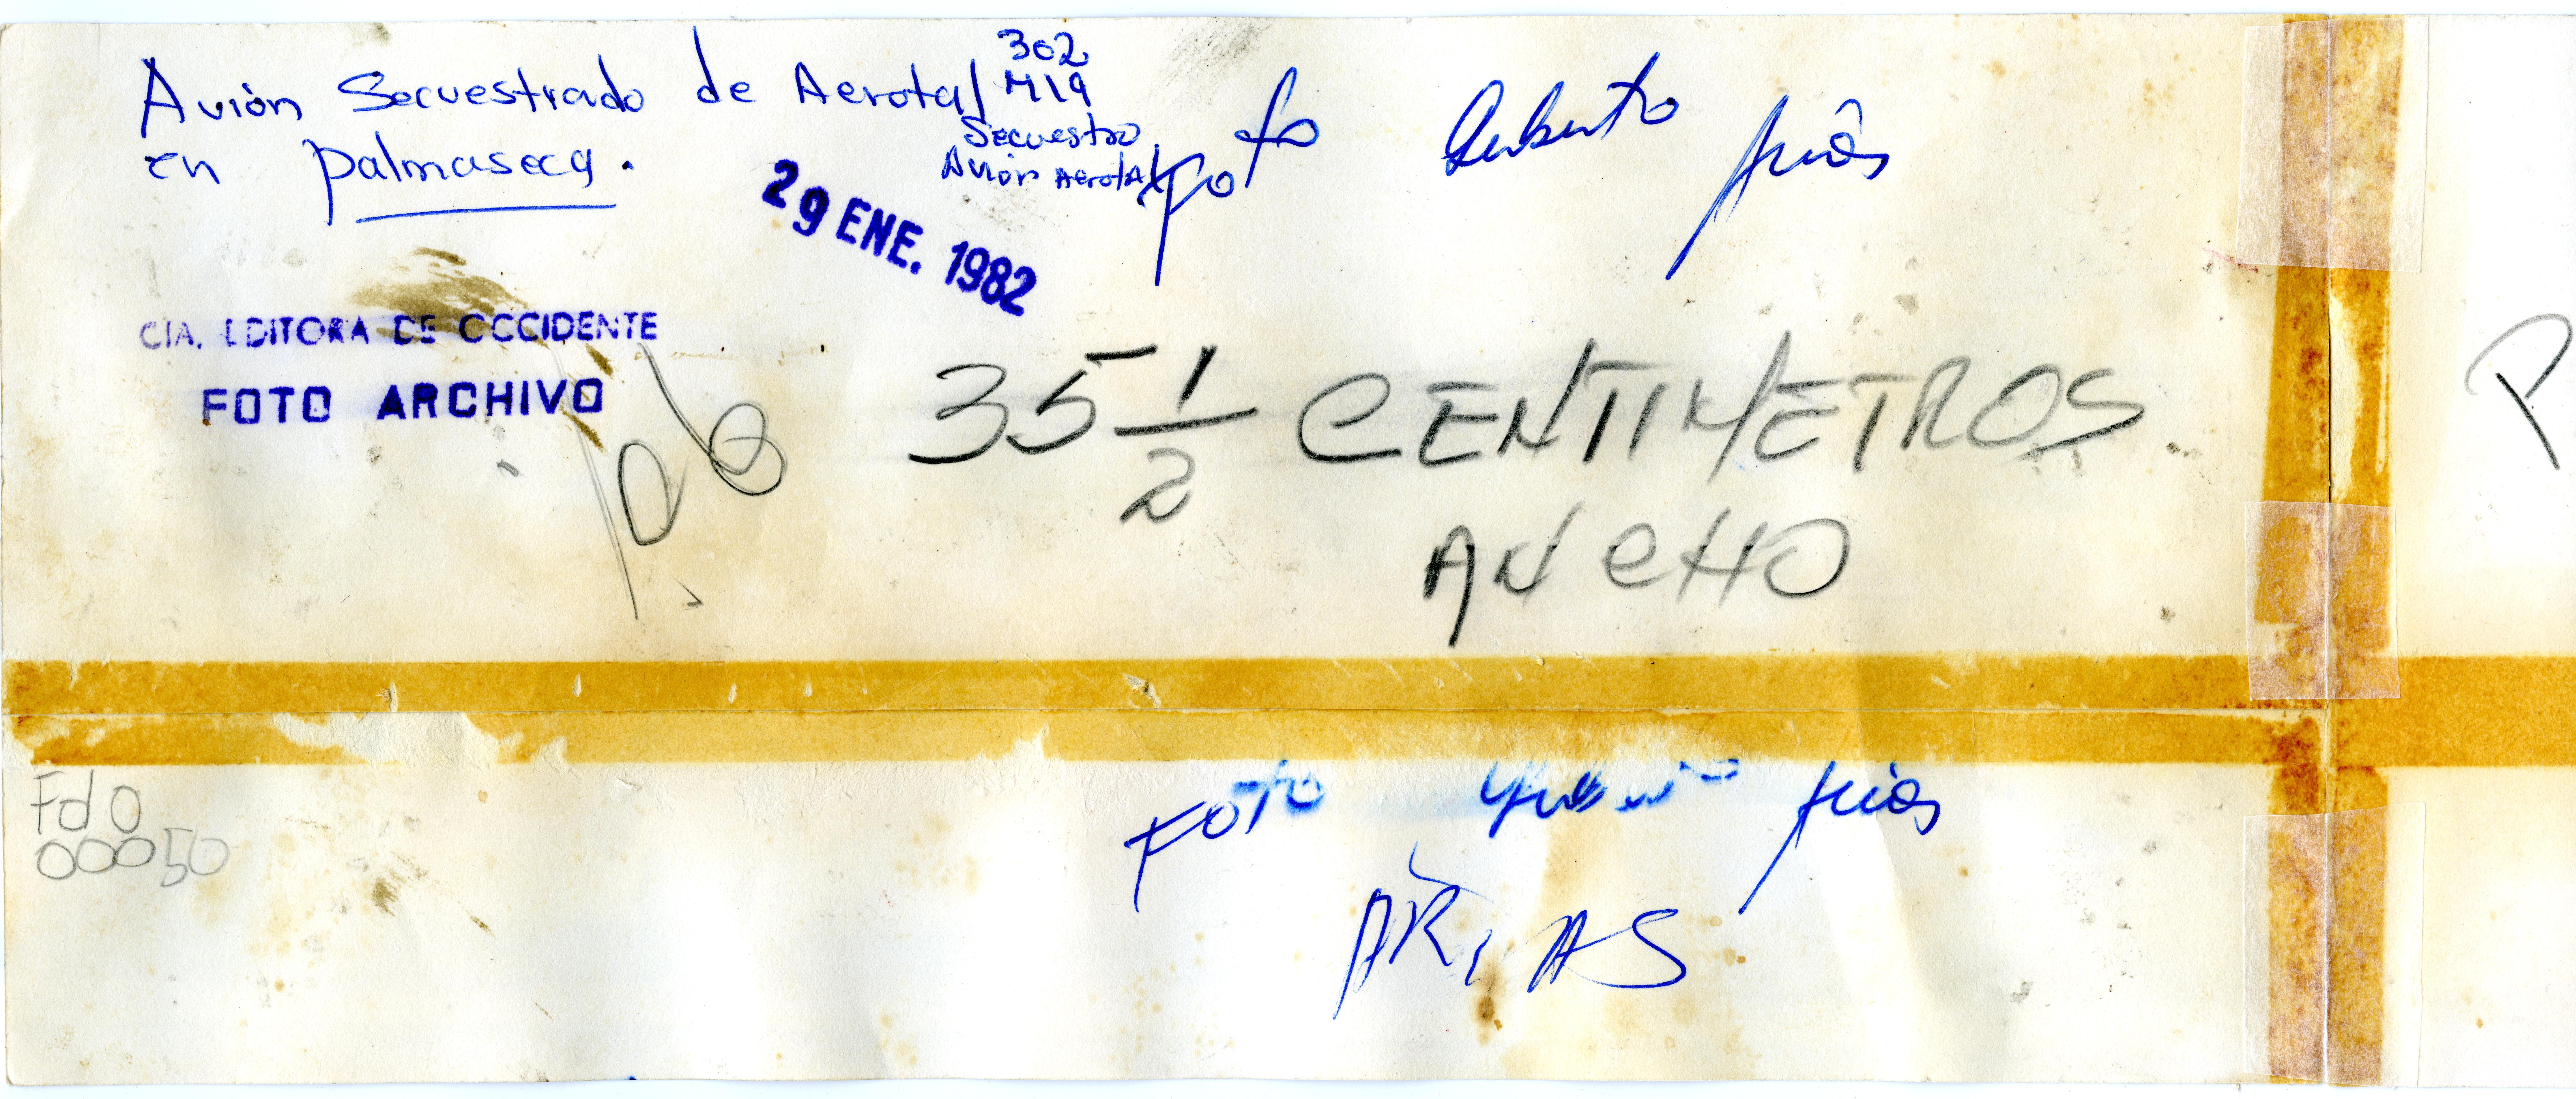 Avión Secuestrado de Aerotal
en Palmaseca.
302
M19
Secuestro
Avión Aerotal
Foto
29 ENE. 1982
CIA. EDITORA DE OCCIDENTE
FOTO ARCHIVO
35 1/2 CENTIMETROS
ANCHO
P
Fd 0
00050
Foto
ARIAS